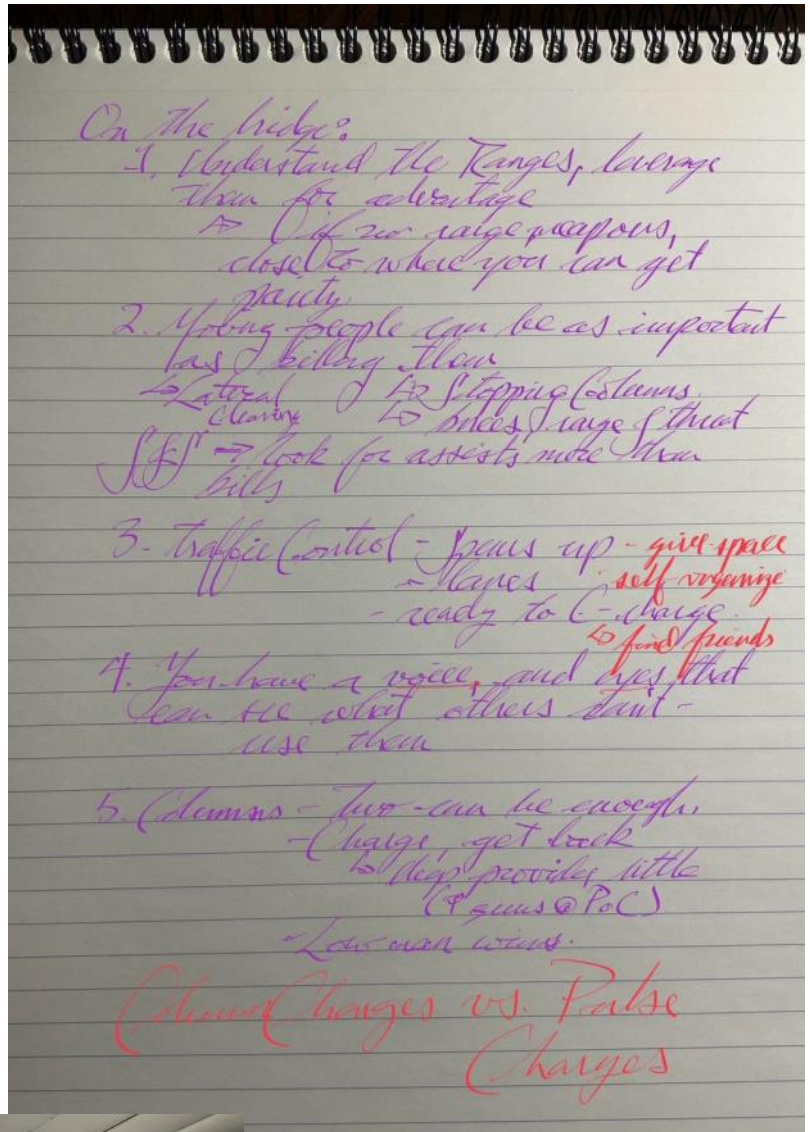 On the bridge:
1. Understand the Ranges, leverage
them for advantage
↳ if no range weapons,
close to where you can get
parity.
2. Moving people can be as important
as killing them
↳ Lateral ↳ Stopping Columns
Clearing ↳ range & threat
→ look for assists more than
kills
3. Traffic Control - Spears up - give space
- lanes - self organize
- ready to C-charge
↳ find friends
4. You have a voice, and eyes that
can see what others don't -
use them
5. Columns - Two can be enough.
- Charge, get back
↳ deep provides little
@ PoC)
- Low man wins.
Column Charges vs. Pulse
Charges